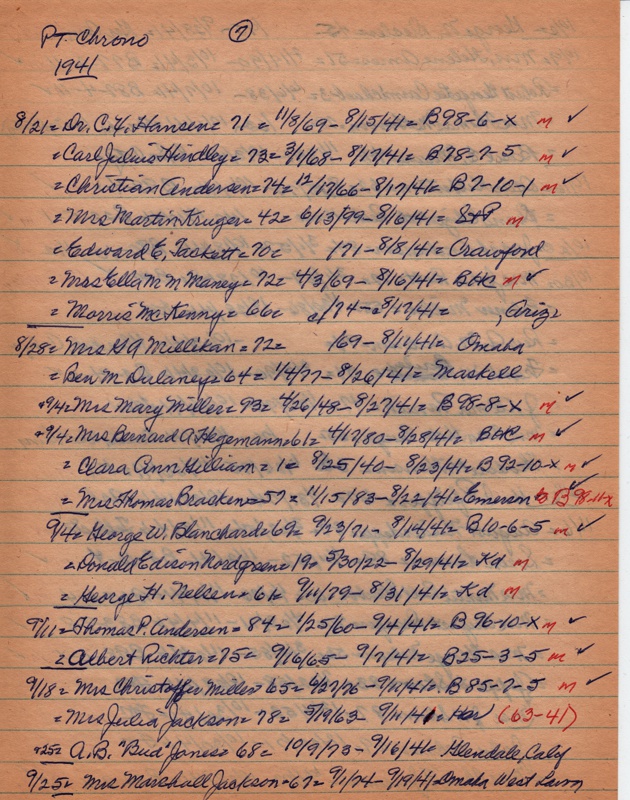 P.T. Chrono 7
1941
8/21 = Dr. C.Y. Hansen = 71 = 11/8/69 - 8/15/41 = B98-6-X m ✓
= Carl Julius Hindley = 73 = 3/1/68 - 8/17/41 = B78-7-5 m ✓
= Christian Andersen = 74 = 12/17/66 - 8/17/41 = B7-10-1 m ✓
= Mrs Martin Kruger = 42 = 6/13/99 - 8/16/41 = S&P m
= Edward E. Taskett = 70 = /71 - 8/8/41 = Crawford
= Mrs Ella M Maney = 72 = 4/3/69 - 8/16/41 = m ✓
= Morris McKenny = 66 = /74 - 8/17/41 = , Ariz
8/28 = Mrs G A Millikan = 72 = /69 - 8/11/41 = Omaha
= Ben M Dulaney = 64 = 1/4/77 - 8/26/41 = Maskell
9/4 = Mrs Mary Miller = 93 = 4/26/48 - 8/27/41 = B98-8-X m ✓
9/4 = Mrs Bernard A. Hegemann = 61 = 4/17/80 - 8/28/41 = m ✓
= Clara Ann Gilliam = 1 = 8/25/40 - 8/23/41 = B92-10-X m ✓
= Mrs Thomas Bracken = 57 = 11/15/83 - 8/22/41 = Emerson B98-11-X
9/4 = George W. Blanchard = 69 = 9/23/71 - 8/14/41 = B10-6-5 m ✓
= Donald Edison Nordgren = 19 = 5/30/22 - 8/29/41 = Kd m
= George H. Nelsen = 61 = 9/11/79 - 8/31/41 = Kd m
9/11 = Thomas P. Andersen = 84 = 1/25/60 - 9/4/41 = B96-10-X m ✓
= Albert Richter = 75 = 9/16/65 - 9/7/41 = B25-3-5 m ✓
9/18 = Mrs Christoffer Miller = 65 = 6/27/76 - 9/11/41 = B85-2-5 m ✓
= Mrs Julia Jackson = 78 = 5/19/63 - 9/11/41 = (63-41)
= 25 = A.B. "Bud" Jones = 68 = 10/9/73 - 9/16/41 = Glendale, Caly
9/25 = Mrs Marshall Jackson = 67 = 9/1/74 - 9/19/41 = Omaha West Lawn